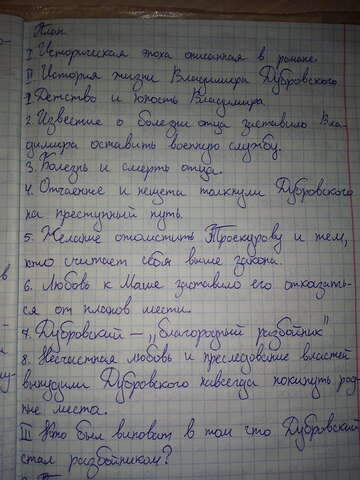 План
I Историческая эпоха описанная в романе.
II История жизни Владимира Дубровского
1 Детство и юность Владимира
2. Известие о болезни отца заставило Вла-
димира оставить военную службу.
3. Болезнь и смерть отца.
4. Отчаение и нищета толкнули Дубровского
на преступный путь.
5. Желание отомстить Троекурову и тем,
кто считает себя выше закона.
6. Любовь к Маше заставило его отказать-
ся от планов мести.
7. Дубровский – „благородный разбойник"
8. Несчастная любовь и преследование властей
вынудили Дубровского навсегда покинуть род-
ные места.
III Кто был виноват в том что Дубровский
стал разбойником?